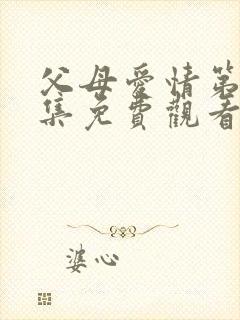 父母愛情第
集免費觀看
婆心